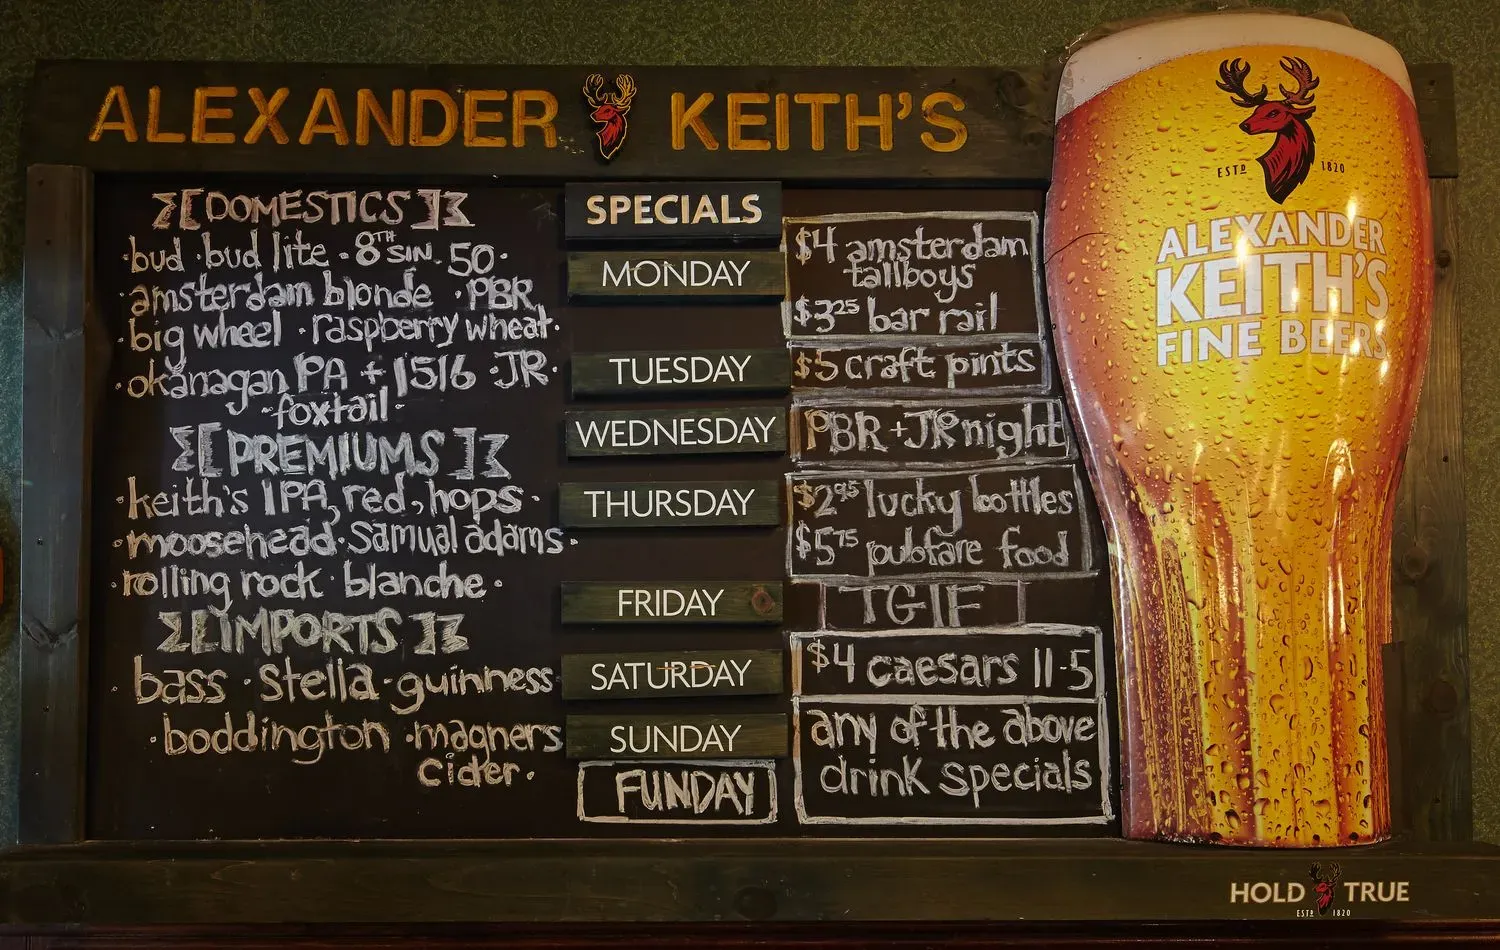 ALEXANDER KEITH'S
[DOMESTICS]
·bud ·bud lite ·8TH SIN. 50·
·amsterdam blonde ·PBR
·big wheel ·raspberry wheat·
·okanagan PA + 1516 ·JR·
·foxtail·
[PREMIUMS]
·keith's IPA, red, hops·
·moosehead·Samual adams·
·rolling rock· blanche·
[IMPORTS]
·bass ·Stella·guinness
·boddington ·magners
cider·
SPECIALS
MONDAY
$4 amsterdam
tallboys
$3.25 bar rail
TUESDAY
$5 craft pints
WEDNESDAY
PBR+JR night
THURSDAY
$2.95 lucky bottles
$5.75 pubfare food
FRIDAY
TGIF
SATURDAY
$4 caesars 11-5
SUNDAY
FUNDAY
any of the above
drink specials
ESTD 1820
ALEXANDER
KEITH'S
FINE BEERS
HOLD TRUE
ESTD 1820